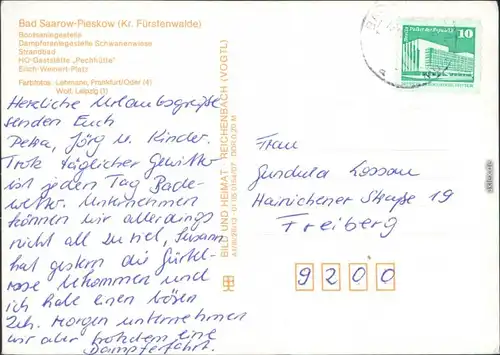 Bad Saarow-Pieskow (Kr. Fürstenwalde)
Bootsanlegestelle
Dampferanlegestelle Schwanenwiese
Strandbad
HO-Gaststätte „Pechhütte"
Erich-Weinert-Platz
Farbfotos: Lehmann, Frankfurt/Oder (4)
Wolf, Leipzig (1)
Herzliche Urlaubsgrüße
senden Euch
Petra, Jörg u. Kinder.
Trotz täglicher Gewitter
ist jeden Tag Bade-
wetter. Unternehmen
können wir allerdings
nicht all zu viel, Susann
hat gestern die Gürtel-
rose bekommen und
ich habe einen bösen
Zeh. Morgen unternehmen
wir aber trotzdem eine
Dampferfahrt.
BILD UND HEIMAT REICHENBACH (VOGTL)
10
Frau
Gundula Lossau
Hainichener Straße 19
Freiberg
9200